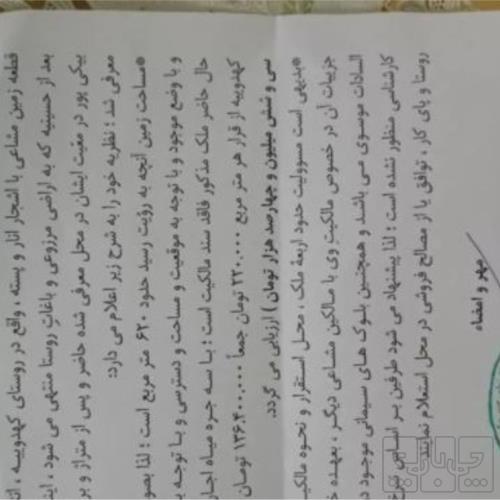 قطعه زمین مشاعی با اشجار انار و پسته ، واقع در روستای کهدوییه ،
بعد از حسینیه که به اراضی مزروعی و باغات روستا منتهی می شود ،
بیکی پور در معیت ایشان در محل معرفی شده حاضر و پس از متراژ و
معرفی شد ؛ نظریه خود را به شرح زیر اعلام می دارد:
*مساحت زمین آنچه به رؤیت رسید حدود ۶۲۰ متر مربع است ؛ لذا
و با وضع موجود و با توجه به موقعیت و مساحت و دسترسی و با توجه
حال حاضر ملک مذکور فاقد سند مالکیت است ؛ با سه جره میاه
کهدوییه از قرار هر متر مربع ۲۲۰.۰۰۰ تومان جمعاً ۱۳۶.۴۰۰.۰۰۰ تومان
سی و شش میلیون و چهارصد هزار تومان ) ارزیابی می گردد.
*بدیهی است مسوولیت حدود اربعهٔ ملک ، محل استقرار و نحوه
جزییات آن در خصوص مالکیت وی با مالکین مشاعی دیگر ، بعهده
السادات موسوی می باشد و همچنین بلوک های سیمانی موجود
کارشناسی منظور نشده است ؛ لذا پیشنهاد می شود طرفین بر اساس
روستا و پای کار ، توافق یا از مصالح فروشی در محل استعلام نمایند.
مهر و امضاء
چی با چی